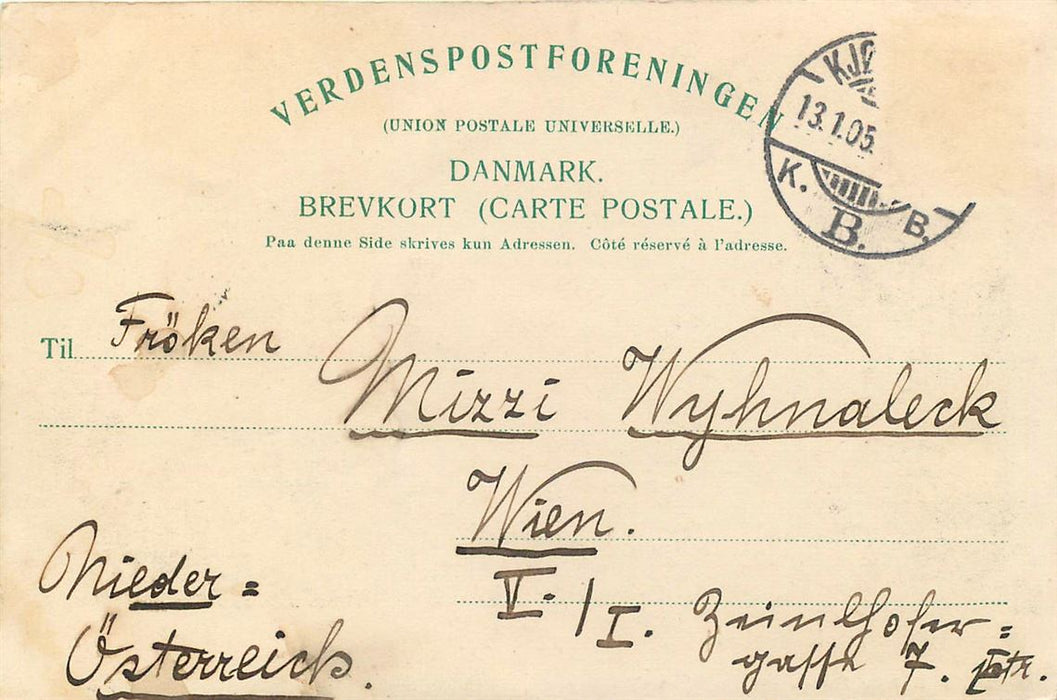 VERDENSPOSTFORENINGEN
(UNION POSTALE UNIVERSELLE.)
DANMARK.
BREVKORT (CARTE POSTALE.)
Paa denne Side skrives kun Adressen. Côté réservé à l'adresse.
KJØ
13.1.05.
K. B.
B.
Til Fröken
Mizzi Wyhnaleck
Wien.
V./I. Zeinlhofer=
gasse 7.
Nieder=
Österreich.